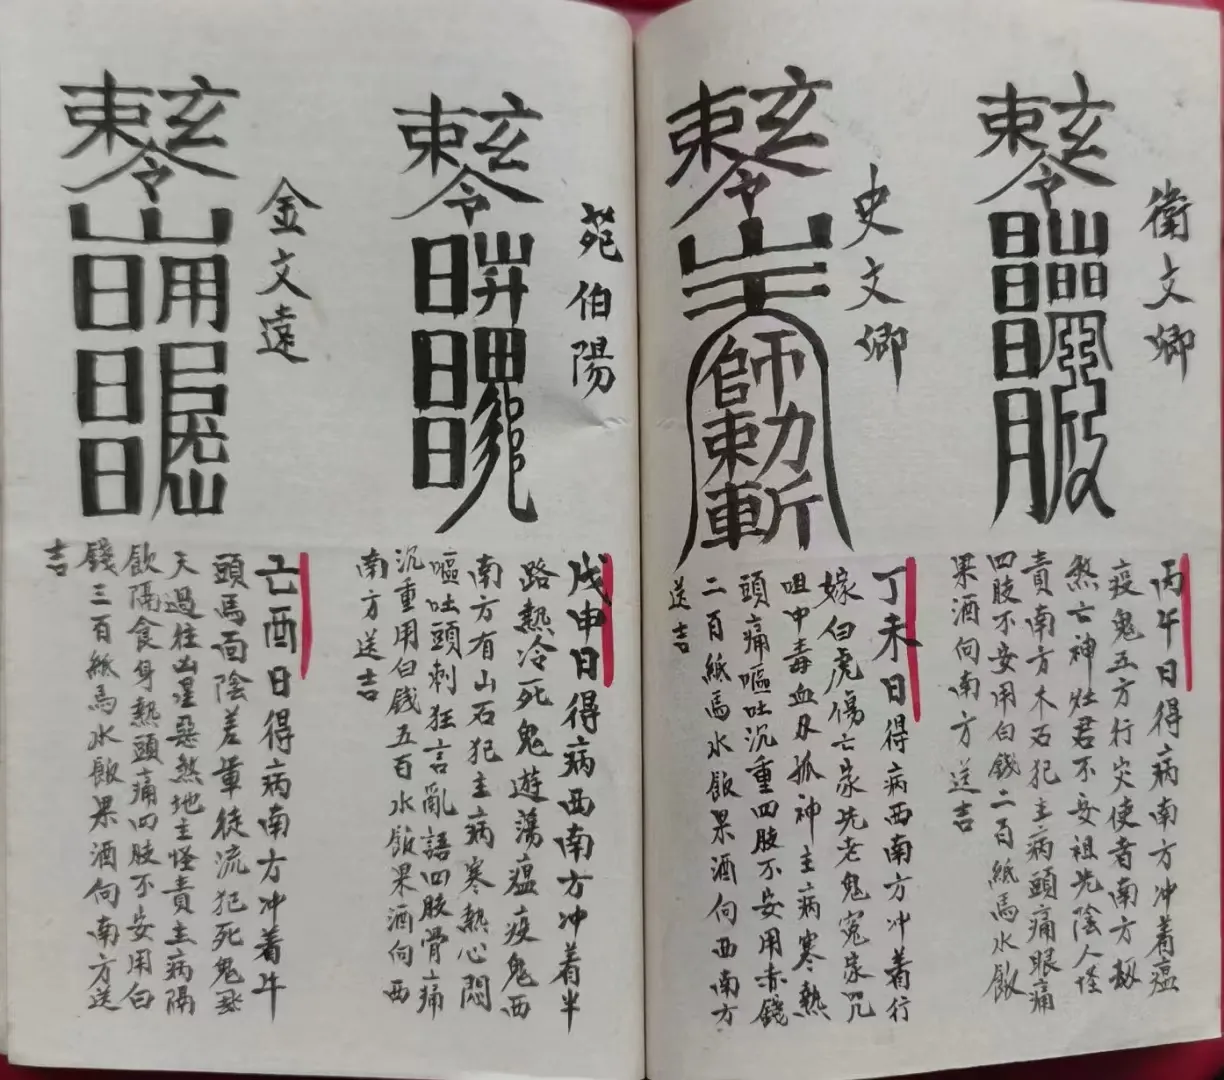 衛文卿
丙午日得病南方冲着瘟
疫鬼五方行灾使者南方
煞亡神灶君不安祖先陰人怪
責南方木石犯主病頭痛眼痛
四肢不安用白錢二百紙馬水飯
果酒向南方送吉
史文卿
師力
東
車斬
丁未日得病西南方冲着行
嫁白虎傷亡家先老鬼冤家咒
咀中毒血刃孤神主病寒熱
頭痛嘔吐沉重四肢不安用赤錢
二百紙馬水飯果酒向西南方
送吉
苑伯陽
戊申日得病西南方冲着半
路熱冷死鬼遊蕩瘟疫鬼西
南方有山石犯主病寒熱心悶
嘔吐頭刺狂言亂語四肢骨痛
沉重用白錢五百水飯果酒向西
南方送吉
金文遠
己酉日得病南方冲着牛
頭馬面陰差輩徒流犯死鬼
天過往凶星惡煞地主怪責主病隔
飲隔食身熱頭痛四肢不安用白
錢三百紙馬水飯果酒向南方送
吉